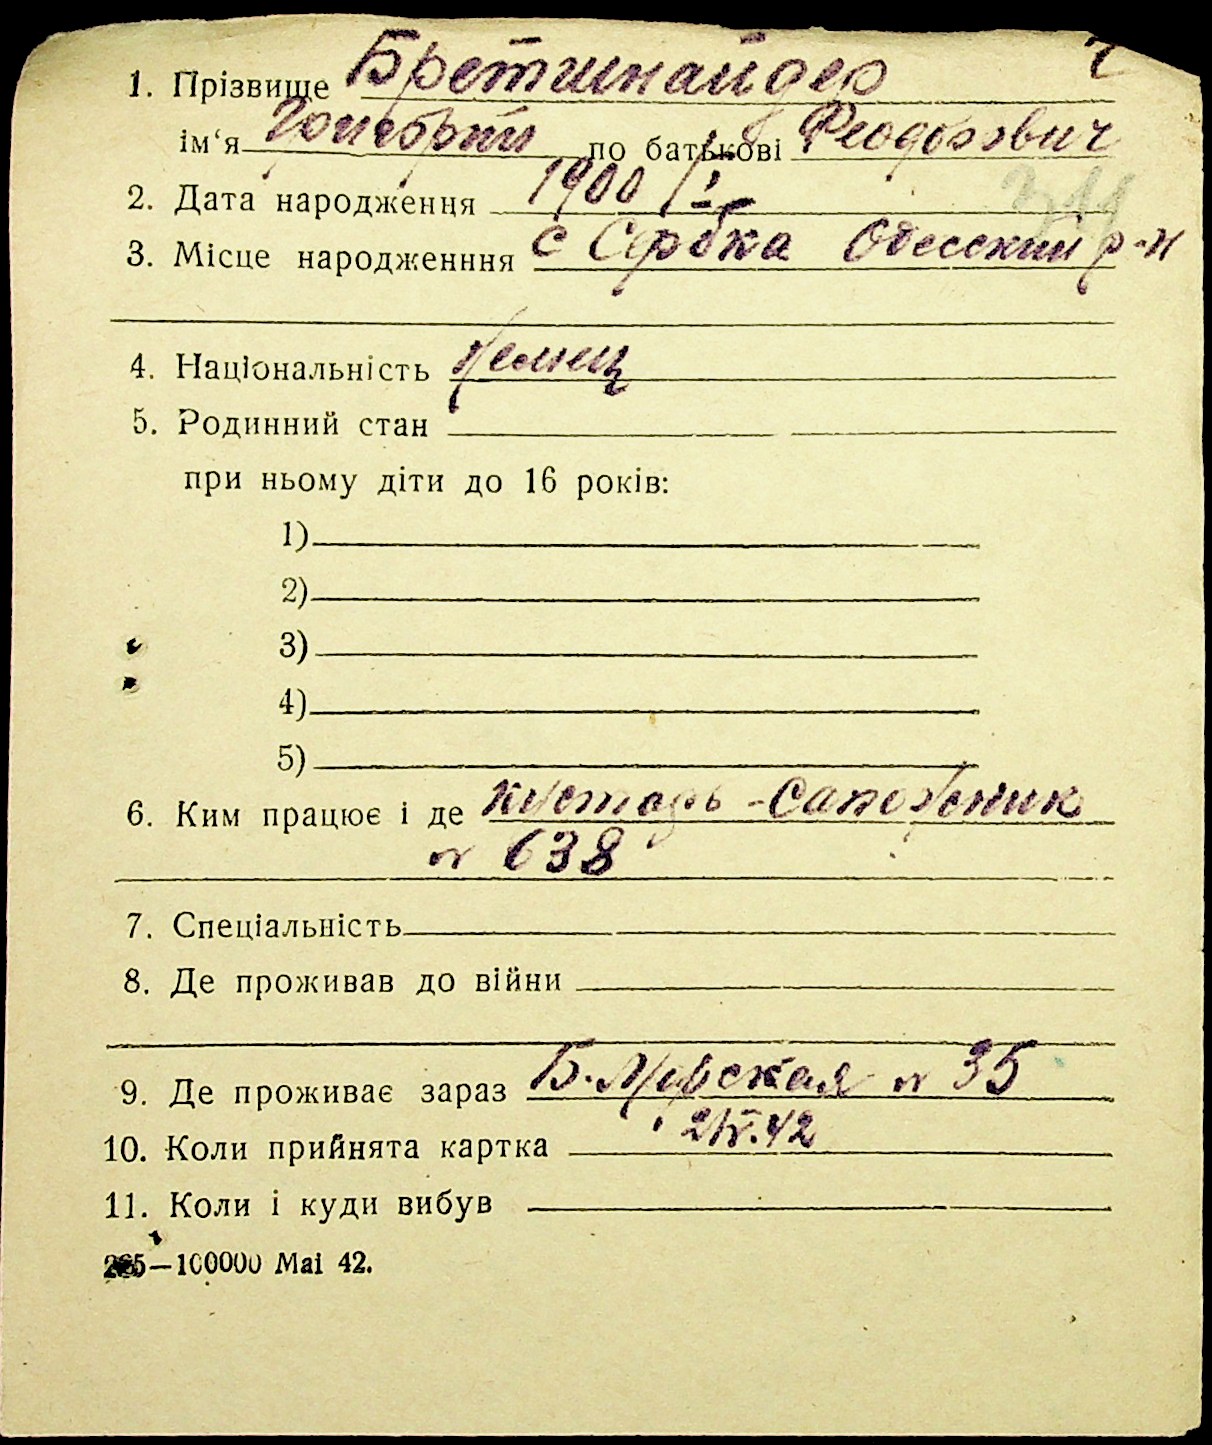 1. Прізвище Бретшнайдер
ім‘я Григорий по батькові Феодорович
2. Дата народження 1900
3. Місце народженння с Сербка Одесский р-н
4. Національність Немец
5. Родинний стан
при ньому діти до 16 років:
1)
2)
3)
4)
5)
6. Ким працює і де кустарь - сапожник
№ 638
7. Спеціальність
8. Де проживав до війни
9. Де проживає зараз Б. Морская № 35
10. Коли прийнята картка
11. Коли і куди вибув
265—100000 Mai 42.